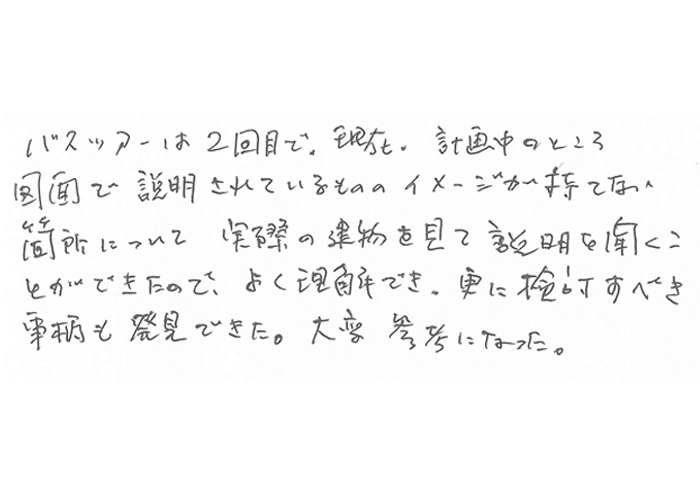 バスツアーは2回目で、現在、計画中のところ
図面で説明されているもののイメージが持てない
箇所について実際の建物を見て説明を聞くこ
とができたので、よく理解でき、更に検討すべき
事柄も発見できた。大変参考になった。